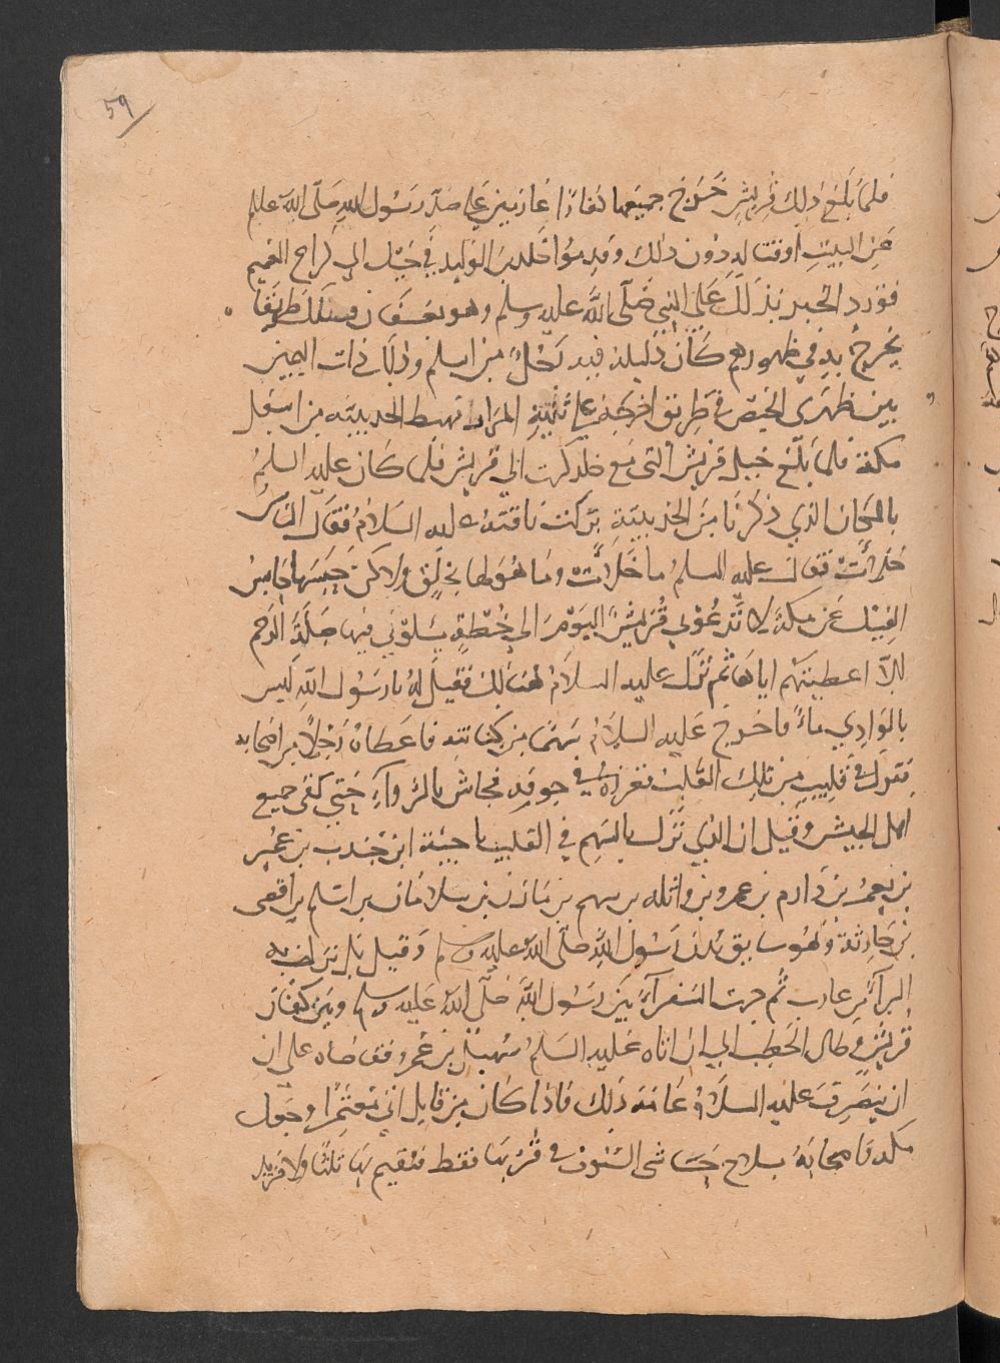 ٥٩
فلما بلغ ذلك قريش خرج جميعها عازمين على صد رسول الله صلى الله عليه
عن البيت او قتاله دون ذلك وقدموا خلد بن الوليد في خيل الى كراع الغميم
فورد الخبر بذلك على النبي صلى الله عليه وسلم وهو بعسفان فسلك طريقا
يخرج به في ظهورهم كان دليله فيه رجل من اسلم وذلك ذات اليمين
بين ظهرى الحمص في طريق اخرجه على ثنية المرار مهبط الحديبيه من اسفل
مكة فلما بلغ خيل قريش التي مع خلد كرت الى قريش فلما كان عليه السلم
بالمكان الذي ذكرنا من الحديبية بركت ناقته عليه السلام فقال الناس
خلأت فقال عليه السلم ما خلأت وما هو لها بخلق ولاكن حبسها حابس
الفيل عن مكة لا تدعوني قريش اليوم الى خطة يسلوني فيها صلة الرحم
الا اعطيتهم اياها ثم نزل عليه السلام هنالك فقيل له يا رسول الله ليس
بالوادي ماء فاخرج عليه السلام سهما من كنانته فاعطاه رجلا من اصحابه
فنزل في قليب من تلك القلب فغرزه في جوفه فجاش بالرواء حتى كفى جميع
اهل الجيش وقيل ان الذي نزل بالسهم في القليب ناجية ابن جندب بن عمير
بن يعمر بن دارم بن عمرو بن واثله بن سهم بن مازن بن سلامان بن اسلم بن افصى
بن حارثة وهو سابق بدن رسول الله صلى الله عليه وسلم وقيل بل نزل به
البراء بن عازب ثم جرت السفراء بين رسول الله صلى الله عليه وسلم وبين كفار
قريش وطال الخطب الى ان اتاه عليه السلم سهيل بن عمرو فقاضاه على ان
ان ينصرف عليه السلام عامه ذلك فاذا كان من قابل اتى معتمرا ودخل
مكه واصحابه بسلاح حاشى السيوف في قربها فقط فيقيم بها ثلثا ولا مزيد